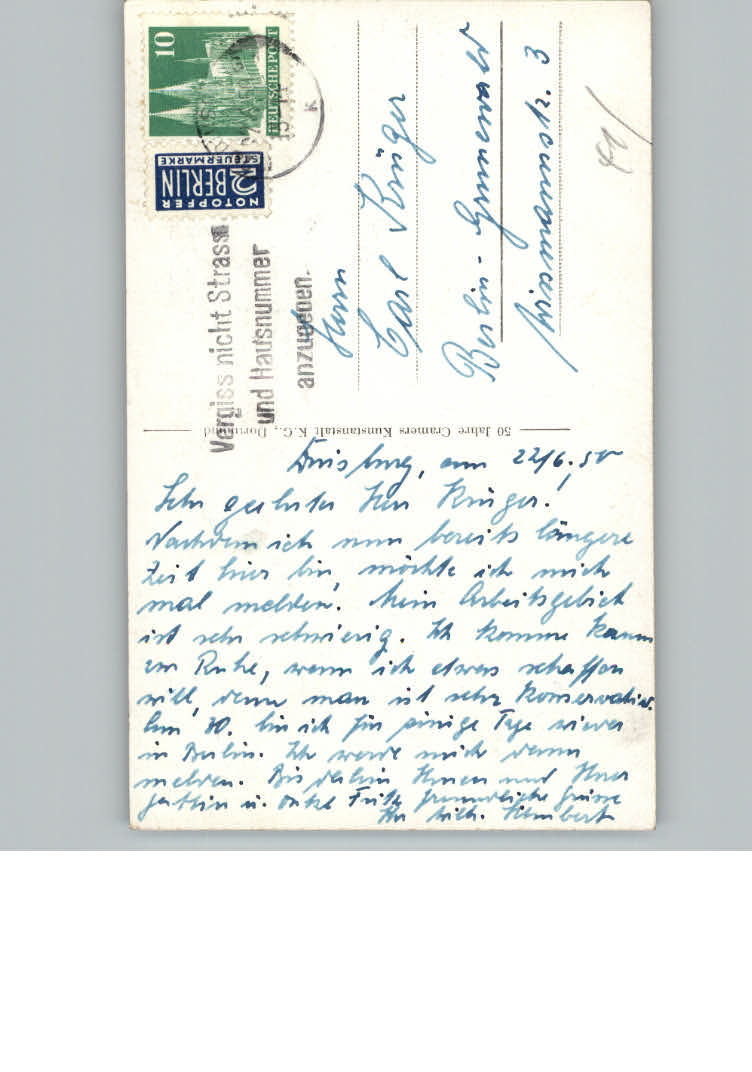 10
DEUTSCHE POST
NOTOPFER
2 BERLIN
STEUERMARKE
Vergiss nicht Strasse
und Hausnummer
anzugeben.
Herrn
Carl Krüger
Berlin-Grunewald
Wissmannstr. 3
50 Jahre Cramers Kunstanstalt K.G., Dortmund
Duisburg, am 22/6.50
Sehr geehrter Herr Krüger!
Nachdem ich nun bereits längere
Zeit hier bin, möchte ich mich
mal melden. Mein Arbeitsgebiet
ist sehr schwierig. Ich komme kaum
zur Ruhe, wenn ich etwas schaffen
will, denn man ist sehr konservativ.
Am 30. bin ich für einige Tage wieder
in Berlin. Ich werde mich dann
melden. Bis dahin Ihnen und Ihrer
Gattin u. Onkel Fritz freundliche Grüsse
Ihr Wilh.